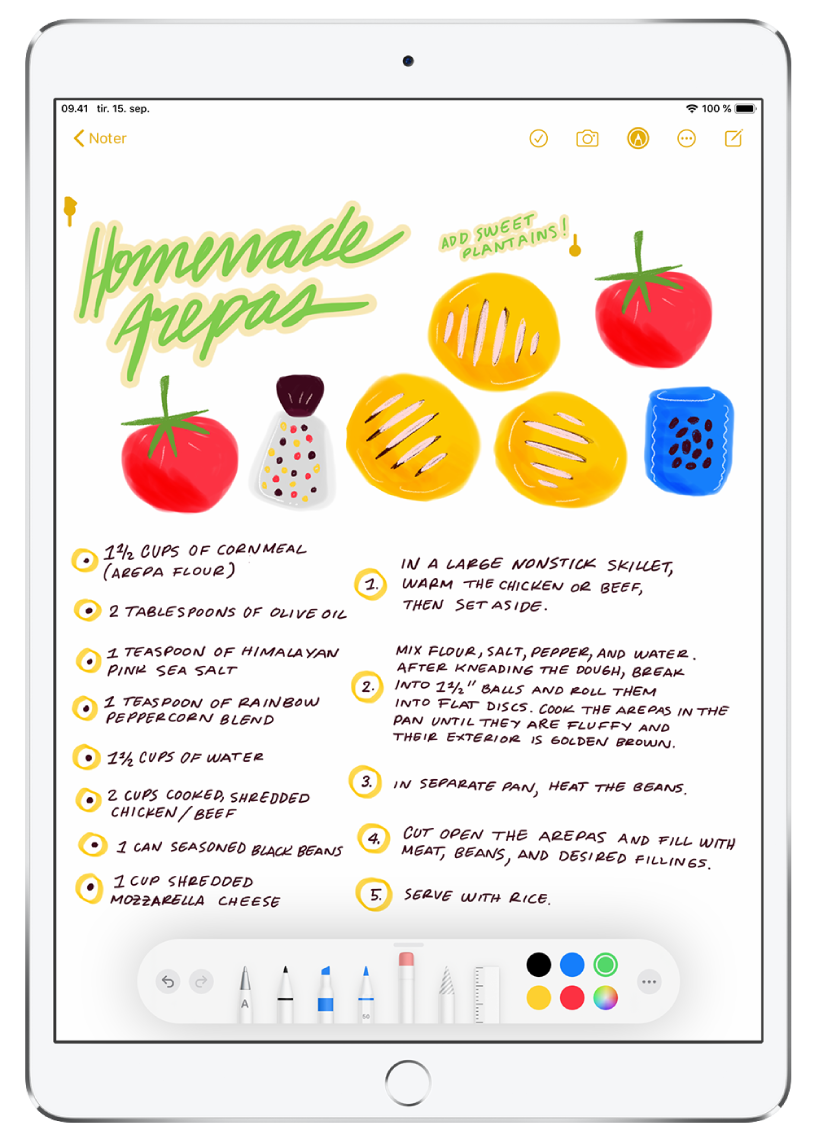 09.41 tir. 15. sep.
100 %
Noter
Homemade
Arepas
ADD SWEET
PLANTAINS!
1 1/2 CUPS OF CORNMEAL
(AREPA FLOUR)
2 TABLESPOONS OF OLIVE OIL
1 TEASPOON OF HIMALAYAN
PINK SEA SALT
1 TEASPOON OF RAINBOW
PEPPERCORN BLEND
1 1/2 CUPS OF WATER
2 CUPS COOKED, SHREDDED
CHICKEN/BEEF
1 CAN SEASONED BLACK BEANS
1 CUP SHREDDED
MOZZARELLA CHEESE
1. IN A LARGE NONSTICK SKILLET,
WARM THE CHICKEN OR BEEF,
THEN SET ASIDE.
2. MIX FLOUR, SALT, PEPPER, AND WATER.
AFTER KNEADING THE DOUGH, BREAK
INTO 1 1/2" BALLS AND ROLL THEM
INTO FLAT DISCS. COOK THE AREPAS IN THE
PAN UNTIL THEY ARE FLUFFY AND
THEIR EXTERIOR IS GOLDEN BROWN.
3. IN SEPARATE PAN, HEAT THE BEANS.
4. CUT OPEN THE AREPAS AND FILL WITH
MEAT, BEANS, AND DESIRED FILLINGS.
5. SERVE WITH RICE.
A
50